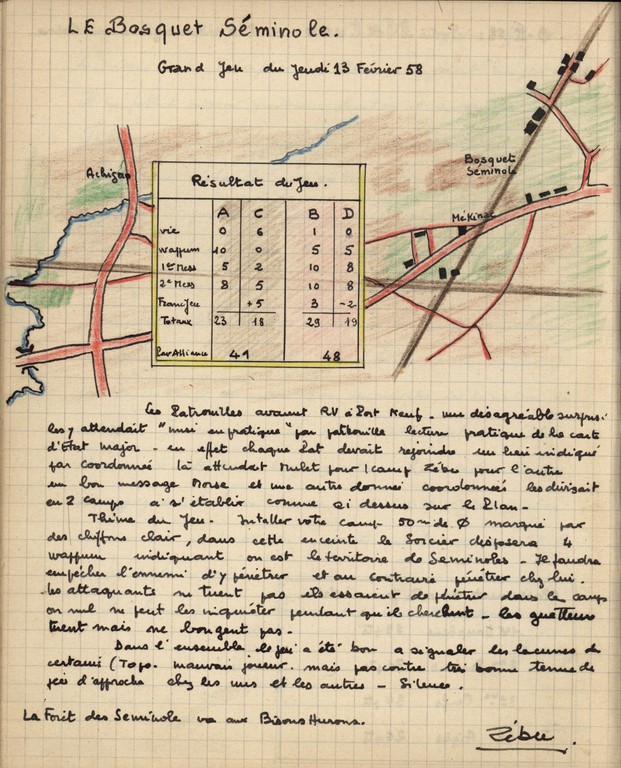 LE Bosquet Séminole.
Grand Jeu du Jeudi 13 Février 58
Achigan
Bosquet
Seminole
Mékinac
Résultat du Jeu.
A C B D
vie 0 6 1 0
wappum 10 0 5 5
1er Mess 5 2 10 8
2e Mess 8 5 10 8
Franc Jeu +5 3 -2
Totaux 23 18 29 19
Par Alliance 41 48
Les Patrouilles avaient RV à Port Neuf - une désagréable surpri-
les y attendait "mise en pratique" par patrouille lecture pratique de la carte
d'Etat Major - en effet chaque Pat devait rejoindre un lieu indiqué
par coordonné là attendet Mulet pour 1 camp Zébu pour l'autre
un bon message Morse et une autre donneé coordonneé les divisait
en 2 camps à s'établir comme ci dessus sur le Plan -
Thème du Jeu - Installer votre camp 50m de Ø marqué par
des chiffons clair, dans cette enceinte le Sorcier disposera 4
wappum indiquant on est le territoire de Seminoles - Il faudra
empécher l'ennemi d'y pénétrer et au contraire pénétrer chez lui.
les attaquants ne tuent pas ils essaient de pénétrer dans le camp
on nul ne peut les inquiéter pendant qu'ils cherchent - les guetteurs
tuent mais ne bougent pas -
Dans l'ensemble le jeu a été bon a signaler les lacunes de
certains (Topo. mauvais joueur. mais pas contre très bonne tenue de
jeu d'approche chez les uns et les autres - Silence.
La Forêt des Seminole va aux Bisons Hurons.
Zébu.